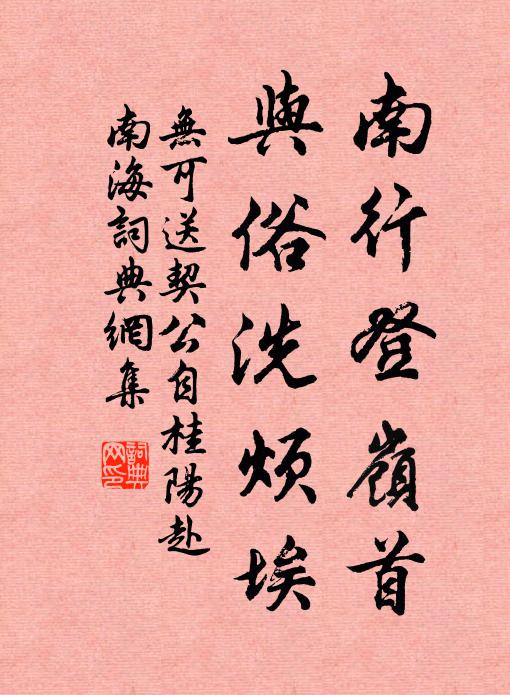 南行登嶺首
與俗洗煩埃
無可送契公自桂陽赴
南海詞典網集
詞典
网印